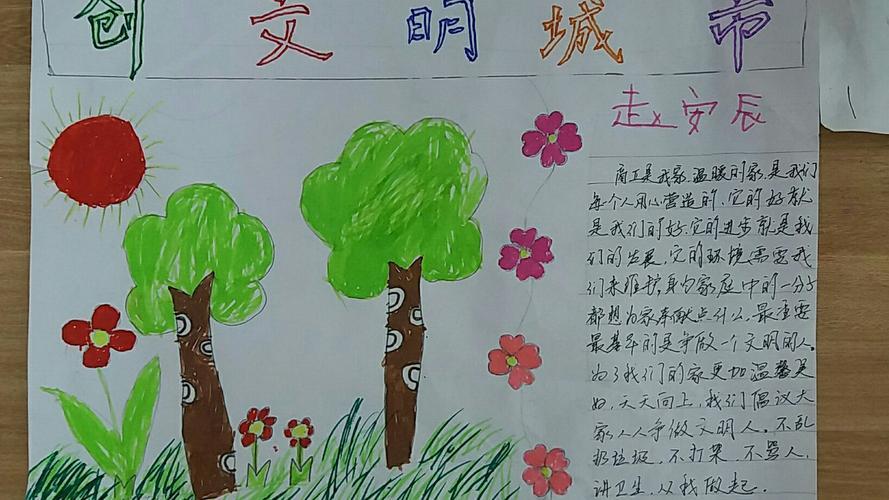 创文明城市
赵安辰
商丘是我家,温暖的家,是我们
每个人用心营造的,它的好就
是我们的好,它的进步就是我
们的发展,它的环境需要我
们来维护,身为家庭中的一分子
都想为家奉献点什么,最重要
最基本的是争做一个文明的人。
为了我们的家更加温馨美
好,天天向上,我们倡议大
家人人争做文明人。不乱
扔垃圾,不打架,不骂人,
讲卫生,从我做起.